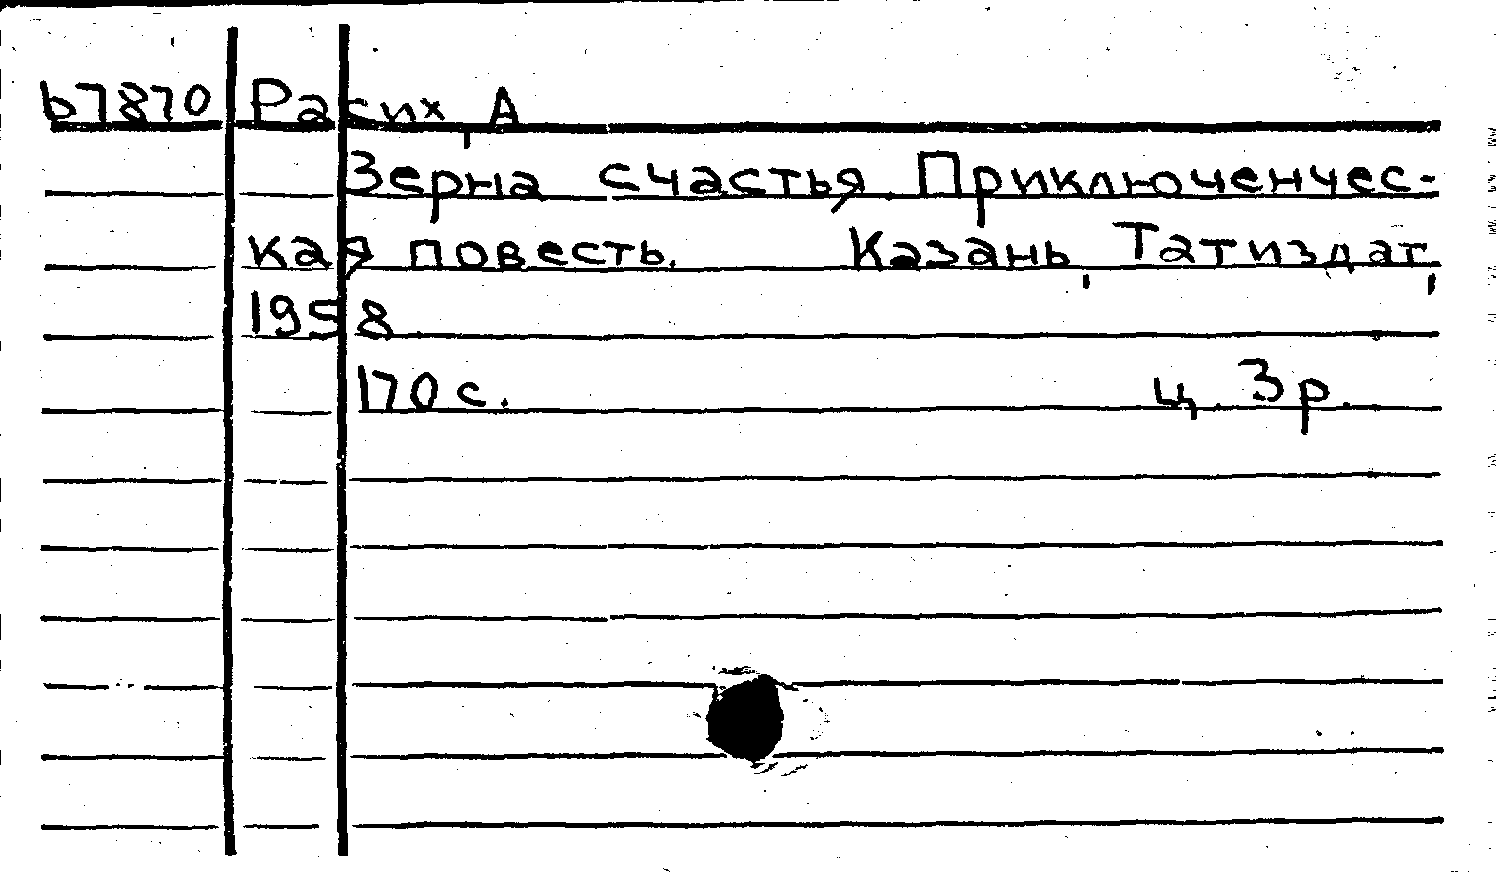 ь7870 Расих, А
Зерна счастья. Приключенчес-
кая повесть. Казань, Татиздат,
1958
170 с. ц. 3 р.